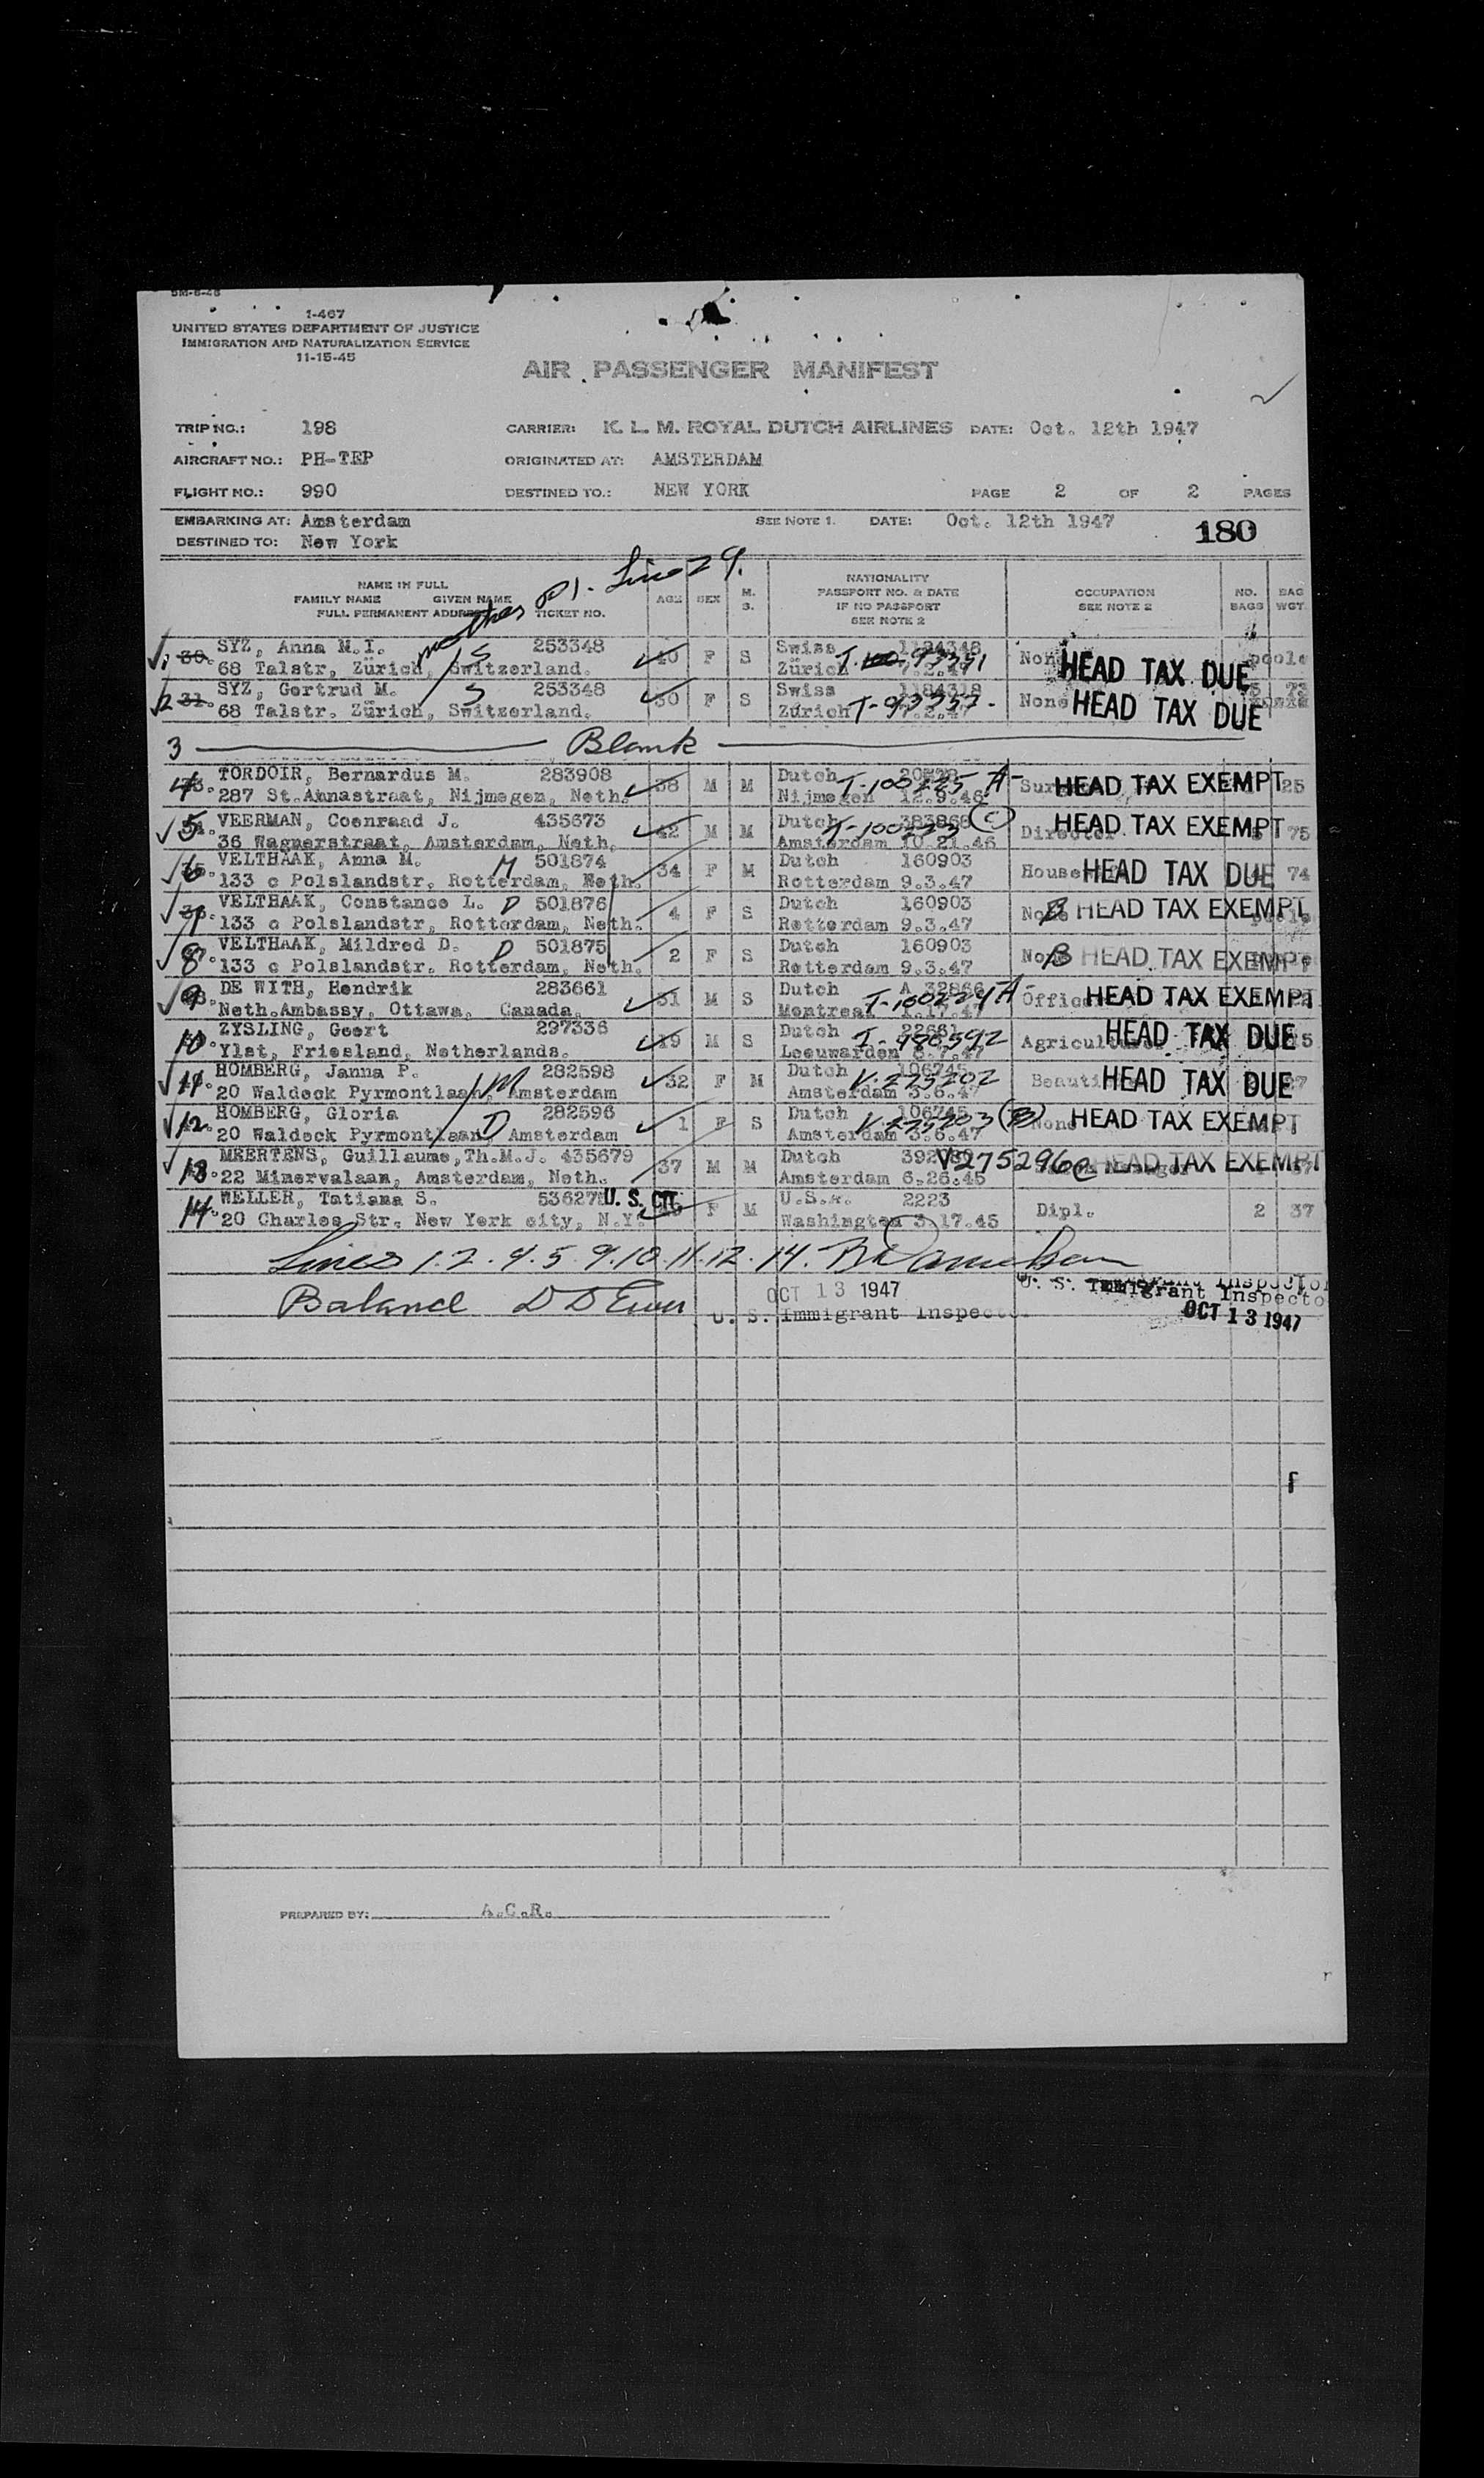 1-467
UNITED STATES DEPARTMENT OF JUSTICE
IMMIGRATION AND NATURALIZATION SERVICE
11-15-45
AIR PASSENGER MANIFEST
TRIP NO.: 198 CARRIER: K. L. M. ROYAL DUTCH AIRLINES DATE: Oct. 12th 1947
AIRCRAFT NO.: PH-TEP ORIGINATED AT: AMSTERDAM
FLIGHT NO.: 990 DESTINED TO.: NEW YORK PAGE 2 OF 2 PAGES
EMBARKING AT: Amsterdam SEE NOTE 1. DATE: Oct. 12th 1947
180
DESTINED TO: New York
mother P1. Line 29.
NAME IN FULL
FAMILY NAME GIVEN NAME
FULL PERMANENT ADDRESS TICKET NO.
AGE SEX M. S.
NATIONALITY
PASSPORT NO. & DATE
IF NO PASSPORT
SEE NOTE 2
OCCUPATION
SEE NOTE 2
NO. BAGS BAG WGT.
1 30. SYZ, Anna M.I. 253348 40 F S Swiss 1184348 None HEAD TAX DUE
68 Talstr, Zürich, Switzerland. S Zürich 7.2.47 T-93351
2 31. SYZ, Gertrud M. S 253348 30 F S Swiss None HEAD TAX DUE
68 Talstr. Zürich, Switzerland. Zürich T-93352.
3 Blank
4 TORDOIR, Bernardus M. 283908 38 M M Dutch T-100225 A- HEAD TAX EXEMPT 25
287 St.Annastraat, Nijmegen, Neth. Nijmegen 12.9.46
5 VEERMAN, Coenraad J. 435673 42 M M Dutch 383868 (C) Director HEAD TAX EXEMPT 75
36 Wagnerstraat, Amsterdam, Neth. Amsterdam 10.21.46
6 VELTHAAK, Anna M. M 501874 34 F M Dutch 160903 HEAD TAX DUE 74
133 c Polslandstr, Rotterdam, Neth. Rotterdam 9.3.47
7 VELTHAAK, Constance L. D 501876 4 F S Dutch 160903 None B HEAD TAX EXEMPT
133 c Polslandstr, Rotterdam, Neth. Rotterdam 9.3.47
8 VELTHAAK, Mildred D. D 501875 2 F S Dutch 160903 None B HEAD TAX EXEMPT
133 c Polslandstr. Rotterdam, Neth. Rotterdam 9.3.47
9 DE WITH, Hendrik 283661 31 M S Dutch A 32866 T-100224 A- HEAD TAX EXEMPT
Neth.Ambassy, Ottawa, Canada. Montreal 1.17.47
10 ZYSLING, Geert 297336 19 M S Dutch 22681 HEAD TAX DUE
Ylst, Friesland, Netherlands. Leeuwarden 8.7.47
11 HOMBERG, Janna P. 282598 32 F M Dutch 106745 V-275202 HEAD TAX DUE 27
20 Waldeck Pyrmontlaan, M Amsterdam Amsterdam 3.6.47
12 HOMBERG, Gloria 282596 1 F S Dutch 106745 V-275203 (B) None HEAD TAX EXEMPT
20 Waldeck Pyrmontlaan, D Amsterdam Amsterdam 3.6.47
13 MEERTENS, Guillaume,Th.M.J. 435679 37 M M Dutch V275296 C HEAD TAX EXEMPT
22 Minervalaan, Amsterdam, Neth. Amsterdam 6.26.45
14 WELLER, Tatiana S. U. S. CIT. F M U.S.A. 2223 Dipl. 2 37
20 Charles Str. New York city, N.Y. Washington 3.17.45
Lines 1.2.4.5.9.10.11.12.14.
Balance
OCT 13 1947
U. S. Immigrant Inspector
U. S. Immigrant Inspecto
OCT 13 1947
PREPARED BY: A.C.R.